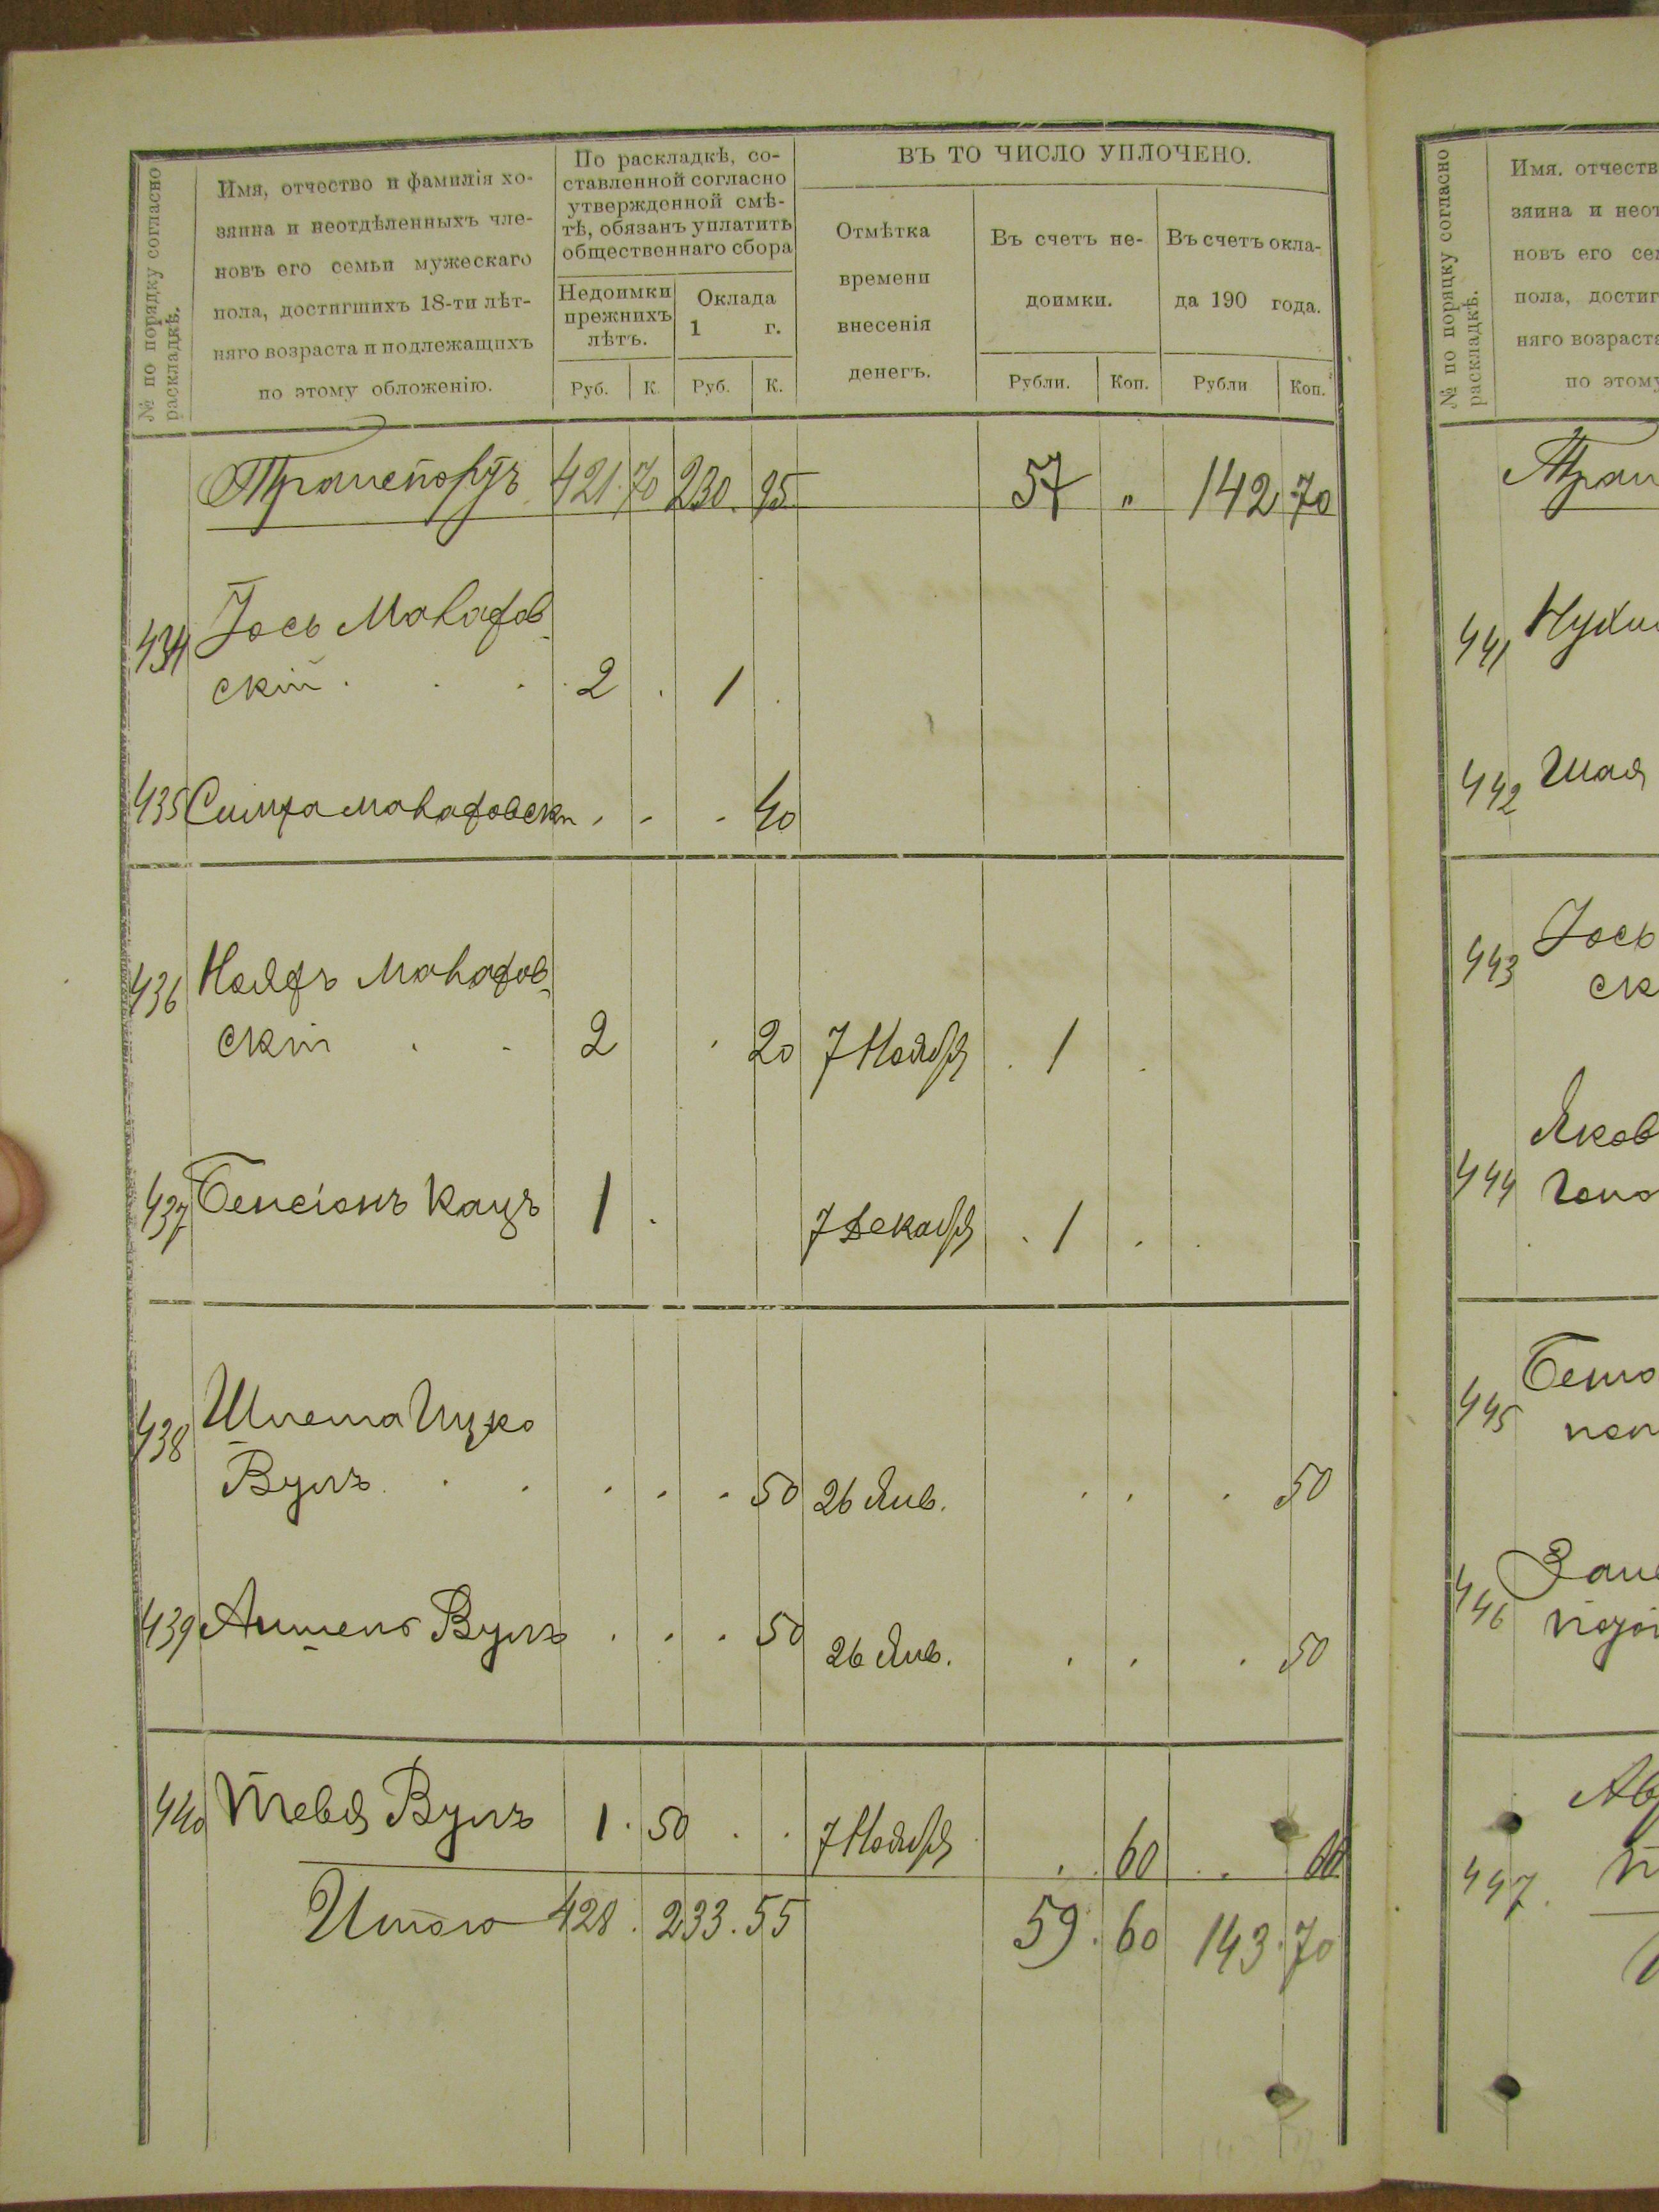 № по порядку согласно раскладкѣ.
Имя, отчество и фамилія хо-
зяина и неотдѣленныхъ чле-
новъ его семьи мужескаго
пола, достигшихъ 18-ти лѣт-
няго возраста и подлежащихъ
по этому обложенію.
По раскладкѣ, со-
ставленной согласно
утвержденной смѣ-
тѣ, обязанъ уплатить
общественнаго сбора
Недоимки
прежнихъ
лѣтъ.
Оклада
1 г.
Руб. К. Руб. К.
ВЪ ТО ЧИСЛО УПЛОЧЕНО.
Отмѣтка
времени
внесенія
денегъ.
Въ счетъ не-
доимки.
Въ счетъ окла-
да 190 года.
Рубли. Коп. Рубли Коп.
Транспортъ 421.70 230.95 57 " 142 70
434 Іось Макаров
скій 2 1
435 40
436 Макаров
скій 2 20 7 Ноября 1
437 Бенсіонъ Кацъ 1 7 Декабря 1
438 Шлема Ицко
Вулъ 50 26 Янв. 50
439 Аншель Вулъ 50 26 Янв. 50
440 Тевя Вулъ 1.50 7 Ноября 60
Итого 428. 233.55 59.60 143.70
№ по порядку согласно раскладкѣ.
Имя. отчеств
зяина и неот
новъ его сем
пола, достиг
няго возраста
по этому
Тран
441 Нухи
442 Шая
443 Іось
ск
444 Яков
445
446
447 Ab